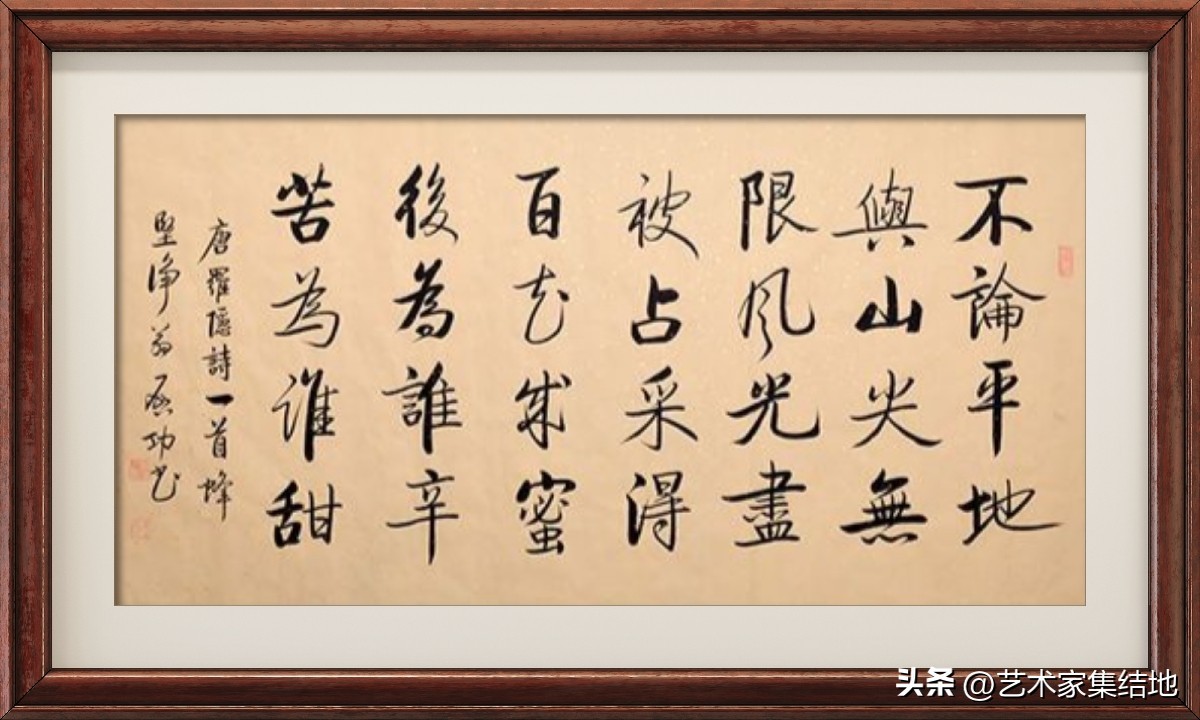 不論平地
與山尖無
限風光盡
被占采得
百花成蜜
後為誰辛
苦為誰甜
唐羅隱詩一首蜂
堅淨翁啟功書
头条 @艺术家集结地